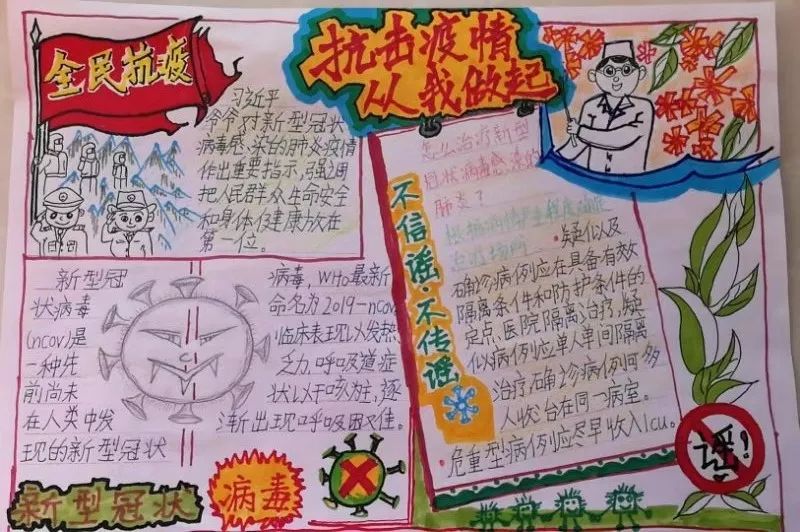 全民抗疫
抗击疫情
从我做起
习近平
对新型冠状
病毒感染的肺炎疫情
作出重要指示,强调
把人民群众生命安全
和身体健康放在
第一位。
新型冠
状病毒
(ncov)是
一种先
前尚未
在人类中发
现的新型冠状
病毒,WHO最新
命名为2019-ncov,
临床表现以发热
乏力、呼吸道症
状以干咳为主,逐
渐出现呼吸困难。
新型冠状
病毒
不信谣·不传谣
怎么治疗新型
冠状病毒感染的
肺炎?
根据病情严重程度确定
治疗场所
·疑似及
确诊病例应在具备有效
隔离条件和防护条件的
定点医院隔离治疗,疑
似病例应单人单间隔离
治疗,确诊病例可多
人收治在同一病室。
·危重型病例应尽早收入Icu。
谣!